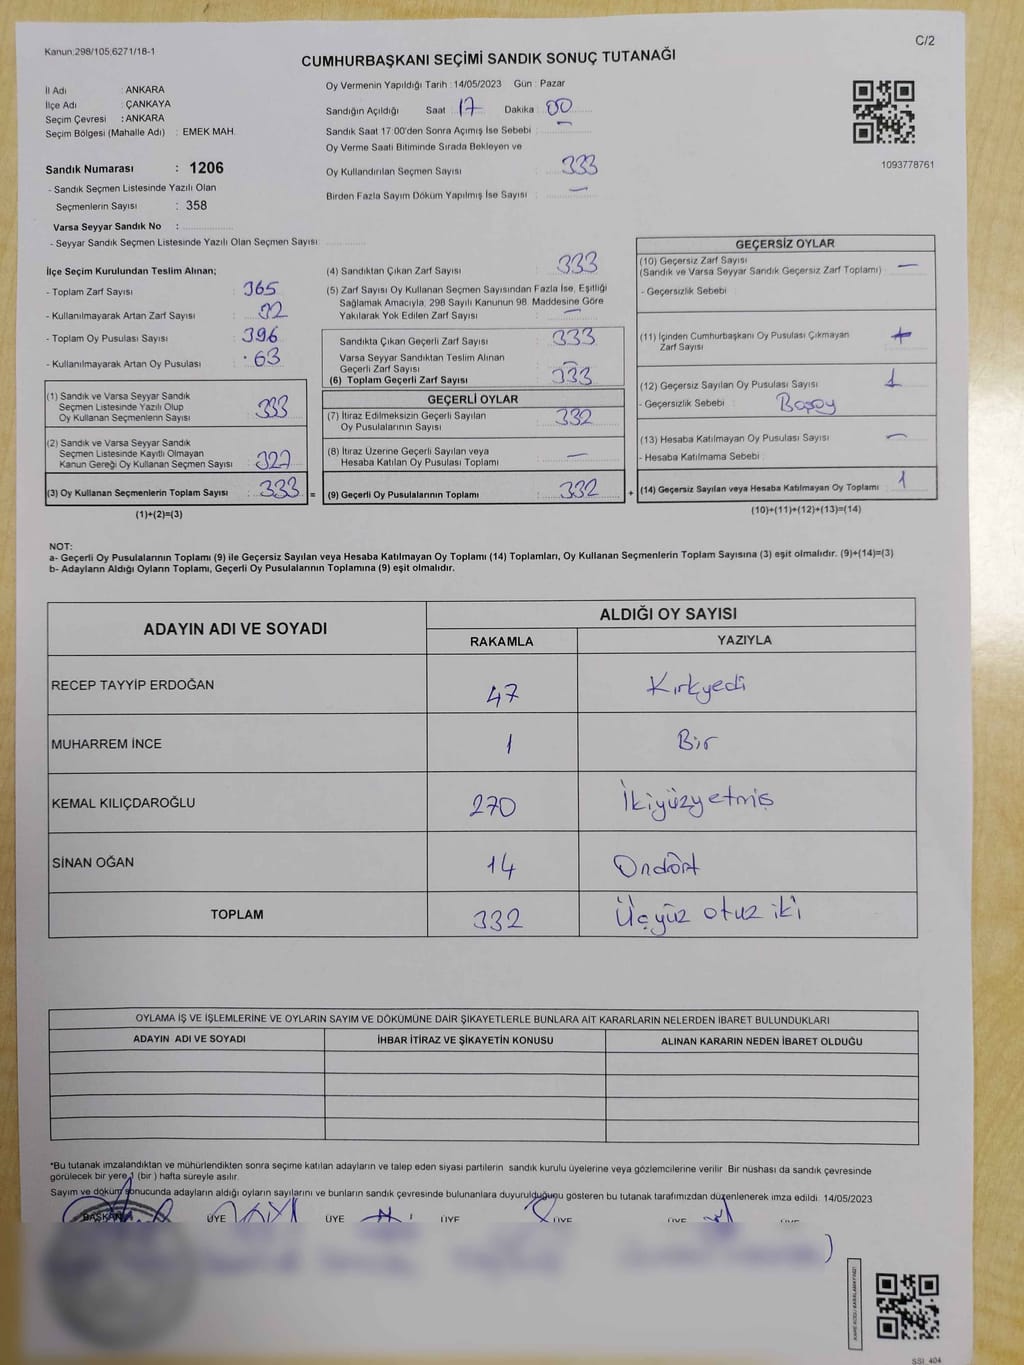 Kanun:298/105,6271/18-1
C/2
CUMHURBAŞKANI SEÇİMİ SANDIK SONUÇ TUTANAĞI
İl Adı : ANKARA
İlçe Adı : ÇANKAYA
Seçim Çevresi : ANKARA
Seçim Bölgesi (Mahalle Adı) : EMEK MAH.
Sandık Numarası : 1206
- Sandık Seçmen Listesinde Yazılı Olan
Seçmenlerin Sayısı : 358
Varsa Seyyar Sandık No :
- Seyyar Sandık Seçmen Listesinde Yazılı Olan Seçmen Sayısı:
Oy Vermenin Yapıldığı Tarih : 14/05/2023 Gün : Pazar
Sandığın Açıldığı Saat : 17 Dakika : 00
Sandık Saat 17:00'den Sonra Açımış İse Sebebi : —
Oy Verme Saati Bitiminde Sırada Bekleyen ve
Oy Kullandırılan Seçmen Sayısı : 333
Birden Fazla Sayım Döküm Yapılmış İse Sayısı : —
1093778761
İlçe Seçim Kurulundan Teslim Alınan;
- Toplam Zarf Sayısı : 365
- Kullanılmayarak Artan Zarf Sayısı :
- Toplam Oy Pusulası Sayısı : 396
- Kullanılmayarak Artan Oy Pusulası : 63
(1) Sandık ve Varsa Seyyar Sandık
Seçmen Listesinde Yazılı Olup
Oy Kullanan Seçmenlerin Sayısı : 333
(2) Sandık ve Varsa Seyyar Sandık
Seçmen Listesinde Kayıtlı Olmayan
Kanun Gereği Oy Kullanan Seçmen Sayısı :
(3) Oy Kullanan Seçmenlerin Toplam Sayısı : 333 =
(1)+(2)=(3)
(4) Sandıktan Çıkan Zarf Sayısı : 333
(5) Zarf Sayısı Oy Kullanan Seçmen Sayısından Fazla İse, Eşitliği
Sağlamak Amacıyla, 298 Sayılı Kanunun 98. Maddesine Göre
Yakılarak Yok Edilen Zarf Sayısı : —
Sandıkta Çıkan Geçerli Zarf Sayısı : 333
Varsa Seyyar Sandıktan Teslim Alınan
Geçerli Zarf Sayısı : —
(6) Toplam Geçerli Zarf Sayısı : 333
GEÇERLİ OYLAR
(7) İtiraz Edilmeksizin Geçerli Sayılan
Oy Pusulalarının Sayısı : 332
(8) İtiraz Üzerine Geçerli Sayılan veya
Hesaba Katılan Oy Pusulası Toplamı : —
(9) Geçerli Oy Pusulalarının Toplamı : 332 +
GEÇERSİZ OYLAR
(10) Geçersiz Zarf Sayısı : —
(Sandık ve Varsa Seyyar Sandık Geçersiz Zarf Toplamı)
- Geçersizlik Sebebi :
(11) İçinden Cumhurbaşkanı Oy Pusulası Çıkmayan
Zarf Sayısı :
(12) Geçersiz Sayılan Oy Pusulası Sayısı : 1
- Geçersizlik Sebebi : Boşoy
(13) Hesaba Katılmayan Oy Pusulası Sayısı : —
- Hesaba Katılmama Sebebi :
(14) Geçersiz Sayılan veya Hesaba Katılmayan Oy Toplamı : 1
(10)+(11)+(12)+(13)=(14)
NOT:
a- Geçerli Oy Pusulalarının Toplamı (9) ile Geçersiz Sayılan veya Hesaba Katılmayan Oy Toplamı (14) Toplamları, Oy Kullanan Seçmenlerin Toplam Sayısına (3) eşit olmalıdır. (9)+(14)=(3)
b- Adayların Aldığı Oyların Toplamı, Geçerli Oy Pusulalarının Toplamına (9) eşit olmalıdır.
ADAYIN ADI VE SOYADI ALDIĞI OY SAYISI
RAKAMLA YAZIYLA
RECEP TAYYİP ERDOĞAN 47 Kırkyedi
MUHARREM İNCE 1 Bir
KEMAL KILIÇDAROĞLU 270 İkiyüzyetmiş
SİNAN OĞAN 14 Ondört
TOPLAM 332 Üçyüz otuz iki
OYLAMA İŞ VE İŞLEMLERİNE VE OYLARIN SAYIM VE DÖKÜMÜNE DAİR ŞİKAYETLERLE BUNLARA AİT KARARLARIN NELERDEN İBARET BULUNDUKLARI
ADAYIN ADI VE SOYADI İHBAR İTİRAZ VE ŞİKAYETİN KONUSU ALINAN KARARIN NEDEN İBARET OLDUĞU
*Bu tutanak imzalandıktan ve mühürlendikten sonra seçime katılan adayların ve talep eden siyasi partilerin sandık kurulu üyelerine veya gözlemcilerine verilir. Bir nüshası da sandık çevresinde
görülecek bir yere 1 (bir ) hafta süreyle asılır.
Sayım ve döküm sonucunda adayların aldığı oyların sayılarını ve bunların sandık çevresinde bulunanlara duyurulduğunu gösteren bu tutanak tarafımızdan düzenlenerek imza edildi. 14/05/2023
BAŞKAN ÜYE ÜYE ÜYE ÜYE ÜYE
SSİ: 404